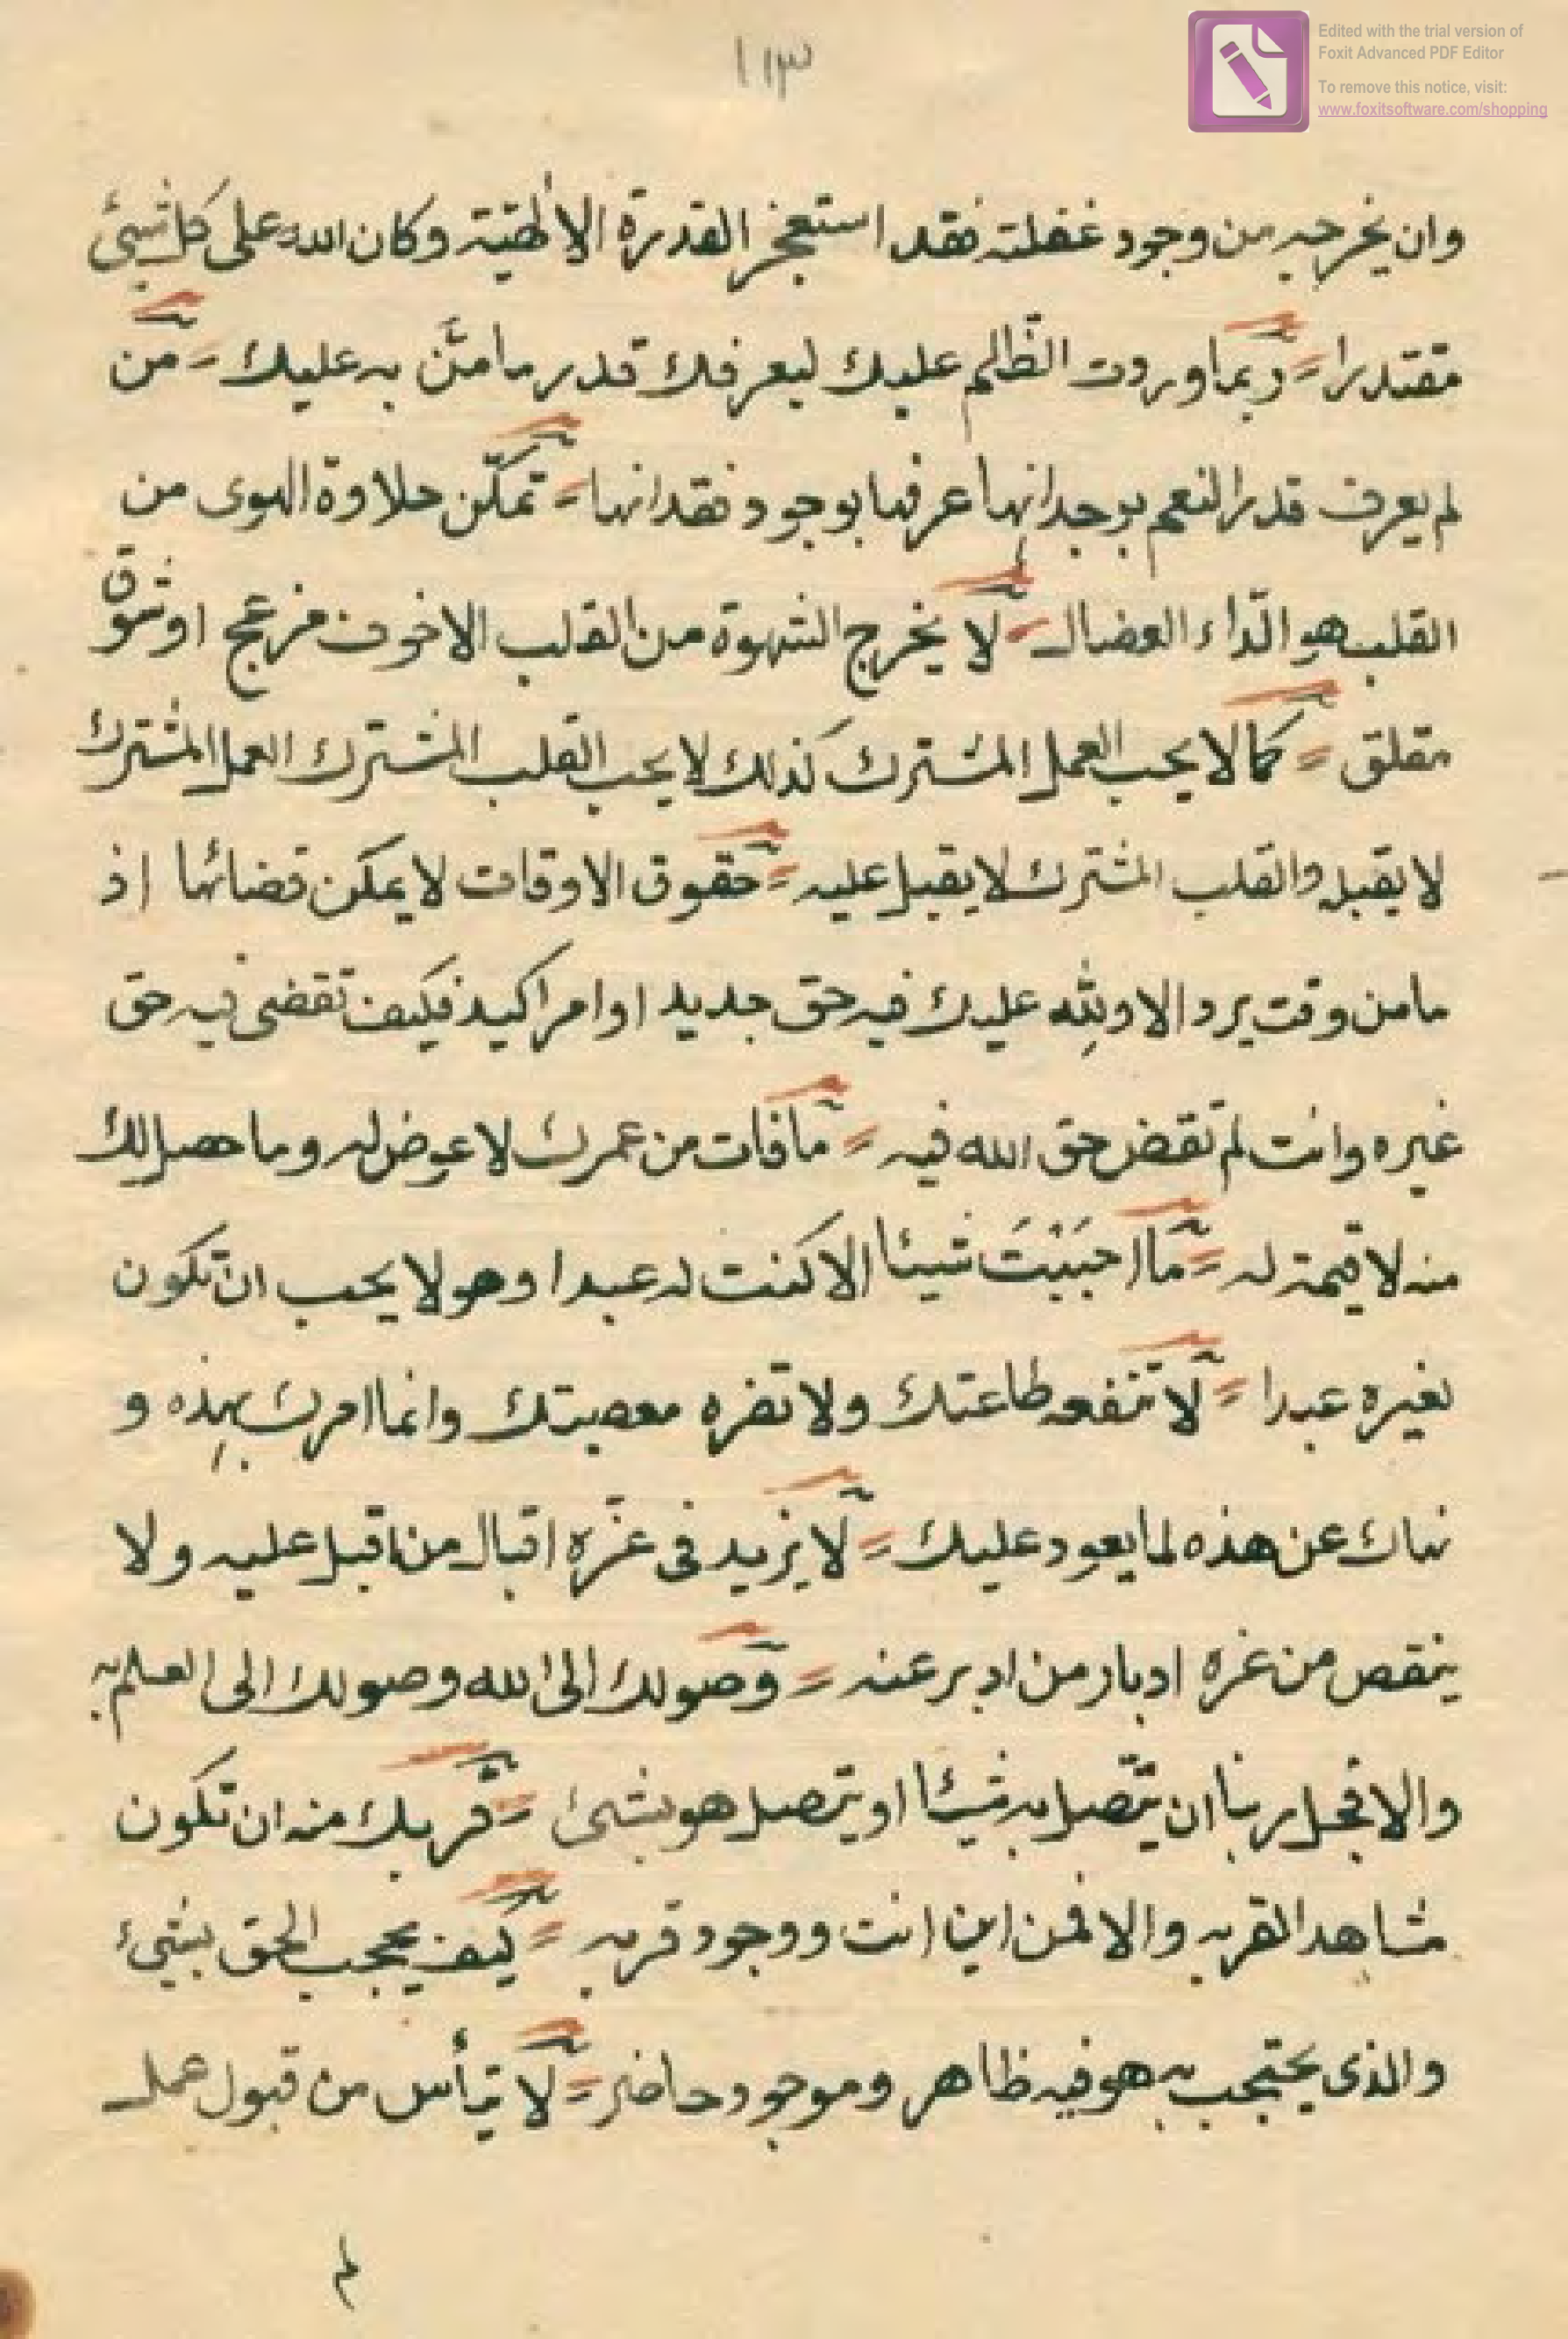 ١١٣
Edited with the trial version of
Foxit Advanced PDF Editor
To remove this notice, visit:
www.foxitsoftware.com/shopping
وان يخرجه من وجود غفلته فقد استعجز القدرة الالهيّة وكان الله على كل شيئ
مقتدرا = ربما وردت الظّلم عليك ليعرفك قدر ما منّ به عليك = من
لم يعرف قدر النعم بوجدانها عرفها بوجود فقدانها = تمكّن حلاوة الهوى من
القلب هو الدّاء العضال = لا يخرج الشهوة من القلب الا خوف مزعج او شوق
مقلق = كما لا يحب العمل المشترك كذلك لا يحب القلب المشترك العمل المشترك
لا يقبله والقلب المشترك لا يقبل عليه = حقوق الاوقات لا يمكن قضائها اذ
ما من وقت يرد الا ولله عليك فيه حق جديد او امر اكيد فكيف تقضى فيه حق
غيره وانت لم تقض حق الله فيه = ما فات من عمرك لا عوض له وما حصل لك
منه لا قيمة له = ما احبَبْتَ شيئا الا كنت له عبدا وهو لا يحب ان تكون
لغيره عبدا = لا تنفعه طاعتك ولا تضره معصيتك وانما امرك بهذه و
نهاك عن هذه لما يعود عليك = لا يزيد فى عزّه اقبال من اقبل عليه ولا
ينقص من عزه ادبار من ادبر عنه = وصولك الى الله وصولك الى العلم به
والا فجل ربنا ان يتّصل به شيئا او يتصل هو بشئ = قربك منه ان تكون
مشاهدا لقربه والا فمن اين انت ووجود قربه = كيف يحجب الحق بشئ
والذى يحتجب به هو فيه ظاهر وموجود حاضر = لا تيأس من قبول عمل
لم